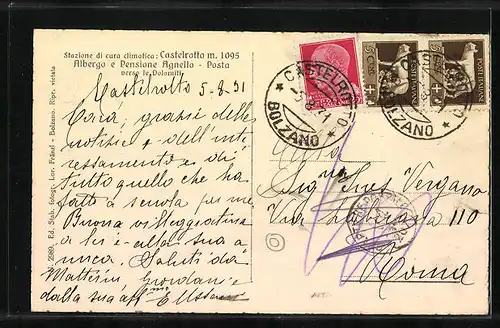 Stazione di cura climatica: Castelrotto m. 1095
Albergo e Pensione Agnello - Posta
verso le Dolomiti
Castelrotto 5-8-31
Cara, grazie delle
notizie e dell'inte
ressamento e di
tutto quello che ha
fatto a scuola per me
Buona villeggiatura
a lei e alla sua a
mica. Saluti da
dalla sua aff
Sig Ines Vergano
Via 110
Roma
CASTELROTTO
BOLZANO
CASTELROTTO
BOLZANO
2989. Ed. Stab. fotogr. Lor. Fränzl - Bolzano. Ripr. vietata